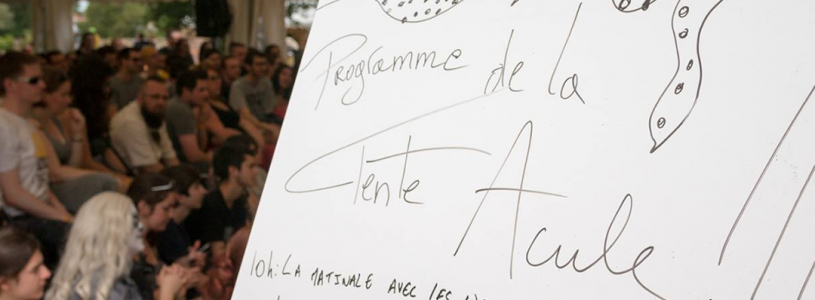 Programme de la
Tente Acule
10h: LA MATINALE AVEC LES